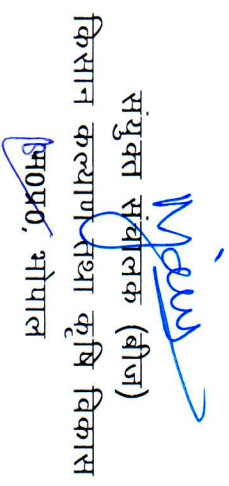 संयुक्त संचालक (बीज)
किसान कल्याण तथा कृषि विकास
म0प्र0, भोपाल